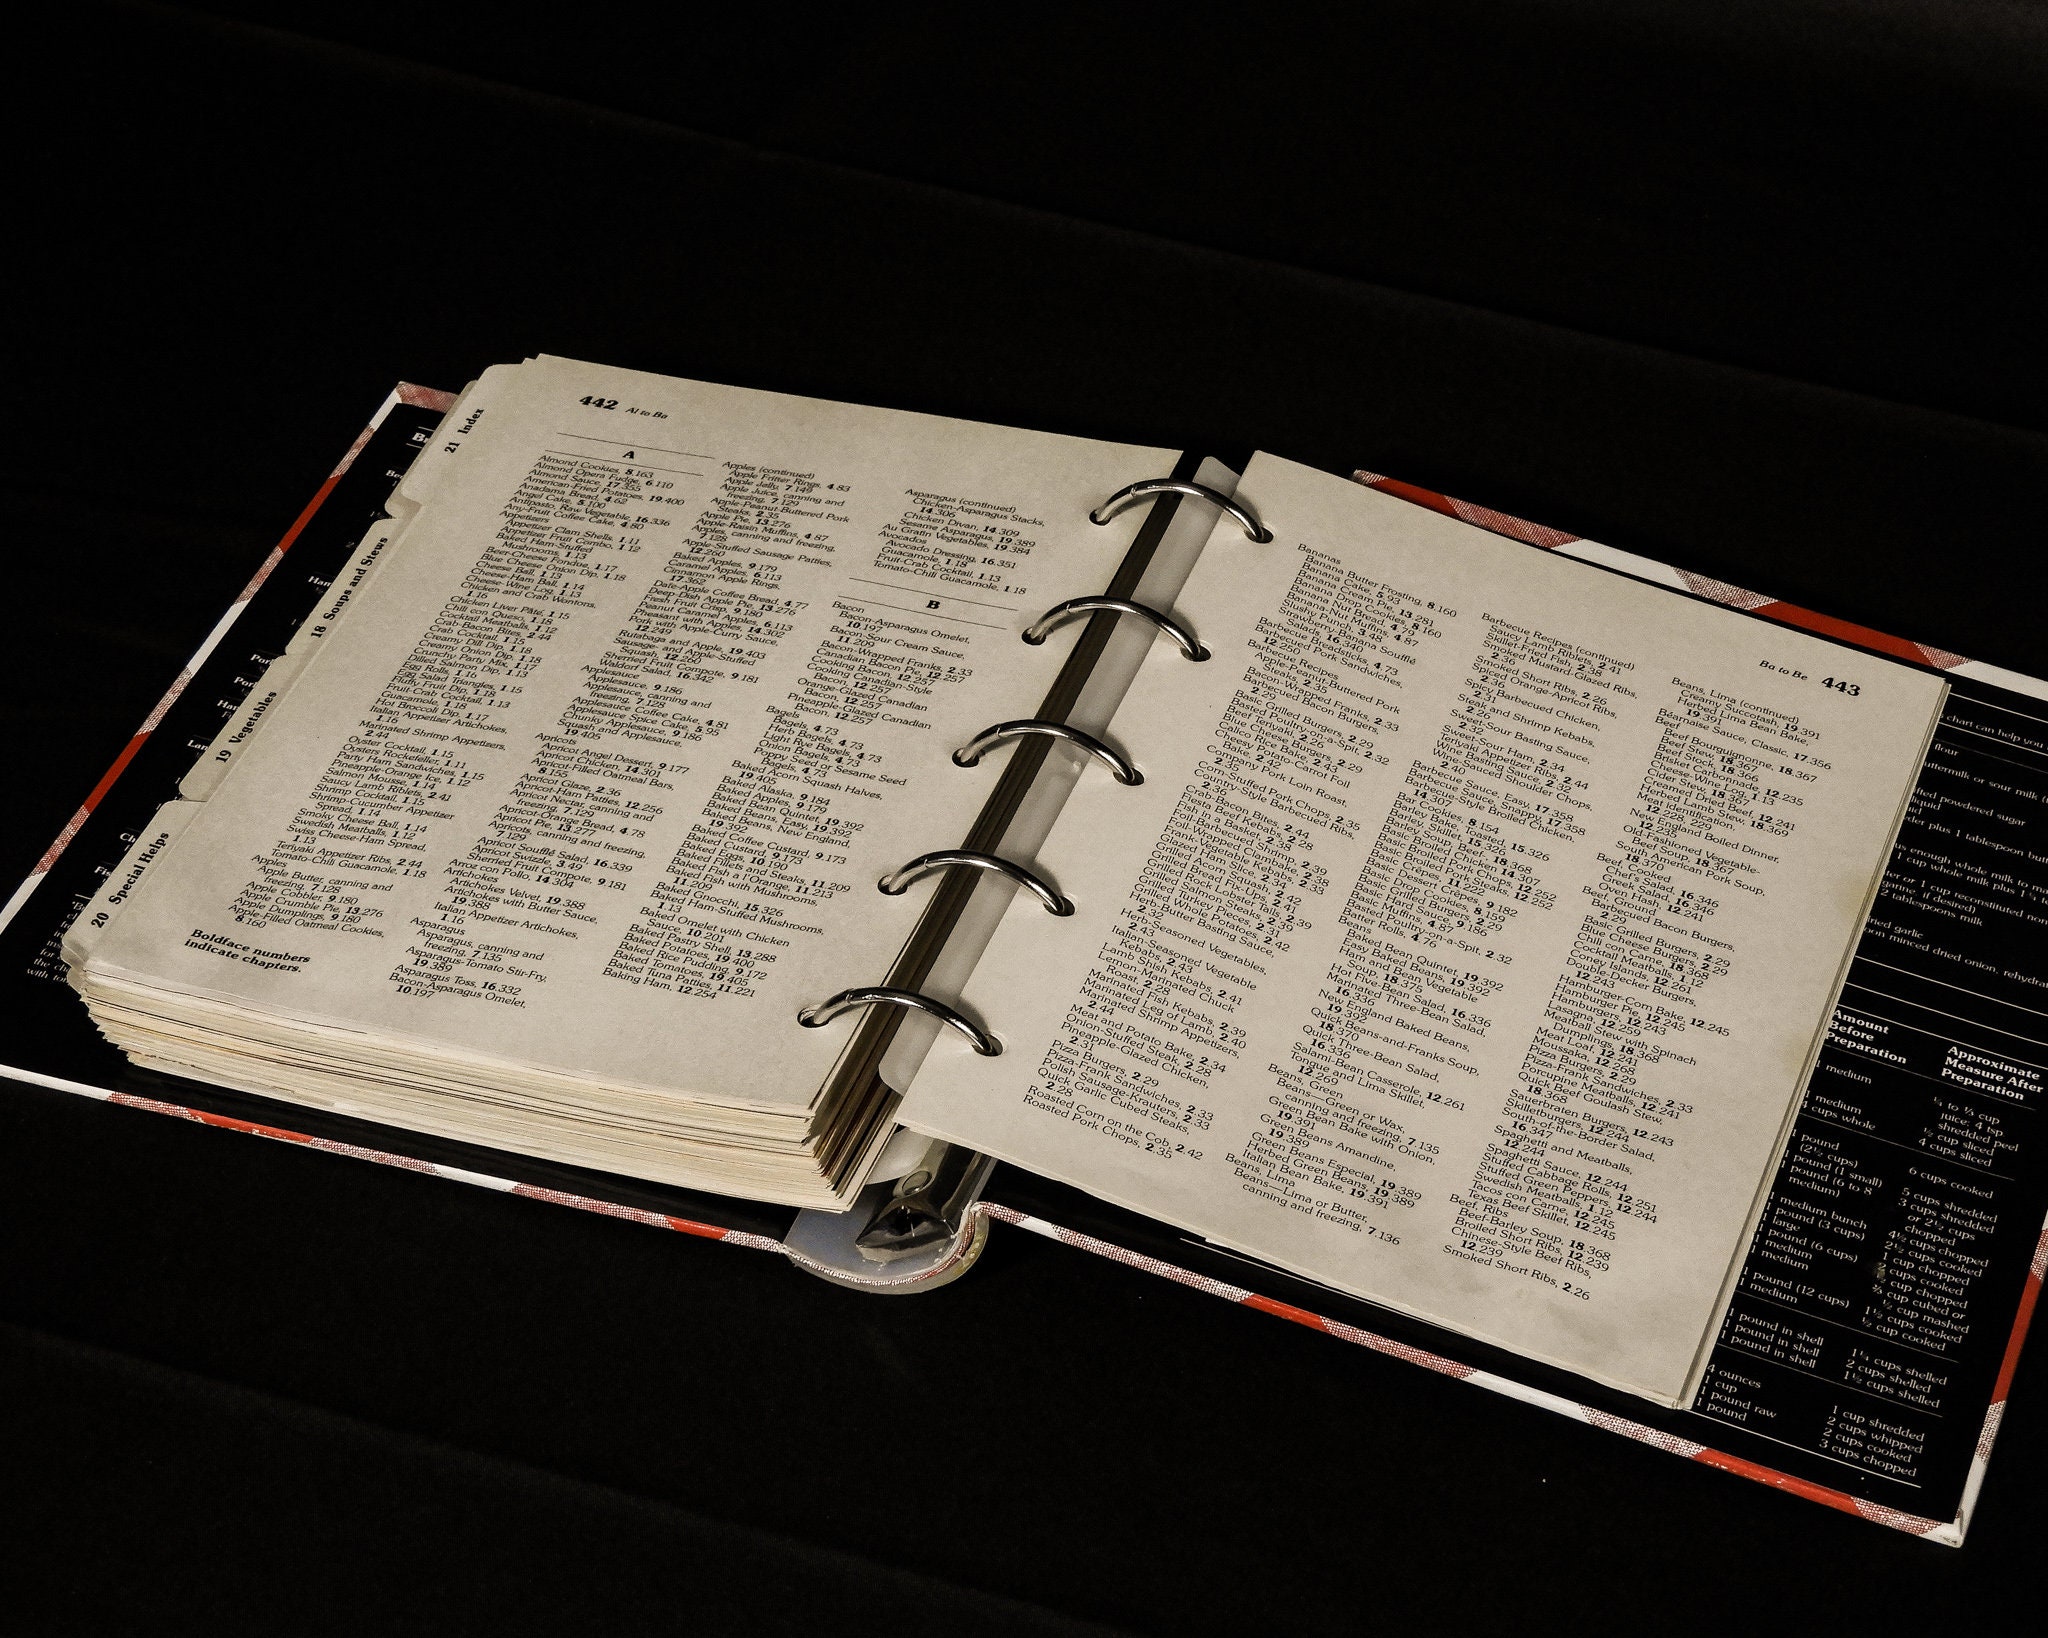 21 Index
18 Soups and Stews
19 Vegetables
20 Special Helps
442 Al to Ba
A
Almond Cookies, 8.163
Almond Opera Fudge, 6.110
Almond Sauce, 17.355
American-Fried Potatoes, 19.400
Anadama Bread, 4.62
Angel Cake, 5.100
Antipasto, Raw Vegetable, 16.336
Any-Fruit Coffee Cake, 4.80
Appetizers
Appetizer Clam Shells, 1.11
Appetizer Fruit Combo, 1.12
Baked Ham-Stuffed
Mushrooms, 1.13
Beer-Cheese Fondue, 1.17
Blue Cheese Onion Dip, 1.18
Cheese Ball, 1.13
Cheese-Ham Ball, 1.14
Cheese-Wine Log, 1.13
Chicken and Crab Wontons,
1.16
Chicken Liver Pâté, 1.15
Chili con Queso, 1.18
Cocktail Meatballs, 1.12
Crab-Bacon Bites, 2.44
Crab Cocktail, 1.15
Creamy Dill Dip, 1.18
Creamy Onion Dip, 1.18
Crunchy Party Mix, 1.13
Dilled Salmon Dip, 1.17
Egg Rolls, 1.16
Egg Salad Triangles, 1.15
Fluffy Fruit Dip, 1.18
Fruit-Crab Cocktail, 1.13
Guacamole, 1.18
Hot Broccoli Dip, 1.17
Italian Appetizer Artichokes,
1.16
Marinated Shrimp Appetizers,
2.44
Oyster Cocktail, 1.15
Oysters Rockefeller, 1.11
Party Ham Sandwiches, 1.15
Pineapple-Orange Ice, 1.12
Salmon Mousse, 1.14
Saucy Lamb Riblets, 2.41
Shrimp Cocktail, 1.15
Shrimp-Cucumber Appetizer
Spread, 1.14
Smoky Cheese Ball, 1.14
Swedish Meatballs, 1.12
Swiss Cheese-Ham Spread,
1.13
Teriyaki Appetizer Ribs, 2.44
Tomato-Chili Guacamole, 1.18
Apples
Apple Butter, canning and
freezing, 7.128
Apple Cobbler, 9.180
Apple Crumble Pie, 13.276
Apple Dumplings, 9.180
Apple-Filled Oatmeal Cookies,
8.160
Boldface numbers
indicate chapters.
Apples (continued)
Apple Fritter Rings, 4.83
Apple Jelly, 7.149
Apple Juice, canning and
freezing, 7.129
Apple-Peanut-Buttered Pork
Steaks, 2.35
Apple Pie, 13.276
Apple-Raisin Muffins, 4.87
Apples, canning and freezing,
7.128
Apple-Stuffed Sausage Patties,
12.260
Baked Apples, 9.179
Caramel Apples, 6.113
Cinnamon Apple Rings,
17.362
Date-Apple Coffee Bread, 4.77
Deep-Dish Apple Pie, 13.276
Fresh Fruit Crisp, 9.180
Peanut Caramel Apples, 6.113
Pheasant with Apples, 14.302
Pork with Apple-Curry Sauce,
12.249
Rutabaga and Apple, 19.403
Sausage- and Apple-Stuffed
Squash, 12.260
Sherried Fruit Compote, 9.181
Waldorf Salad, 16.342
Applesauce
Applesauce, 9.186
Applesauce, canning and
freezing, 7.128
Applesauce Coffee Cake, 4.81
Applesauce Spice Cake, 5.95
Chunky Applesauce, 9.186
Squash and Applesauce,
19.405
Apricots
Apricot Angel Dessert, 9.177
Apricot Chicken, 14.301
Apricot-Filled Oatmeal Bars,
8.155
Apricot Glaze, 2.36
Apricot-Ham Patties, 12.256
Apricot Nectar, canning and
freezing, 7.129
Apricot-Orange Bread, 4.78
Apricot Pie, 13.277
Apricots, canning and freezing,
7.129
Apricot Soufflé Salad, 16.339
Apricot Swizzle, 3.49
Sherried Fruit Compote, 9.181
Arroz con Pollo, 14.304
Artichokes
Artichokes Velvet, 19.388
Artichokes with Butter Sauce,
19.388
Italian Appetizer Artichokes,
1.16
Asparagus
Asparagus, canning and
freezing, 7.135
Asparagus-Tomato Stir-Fry,
19.389
Asparagus Toss, 16.332
Bacon-Asparagus Omelet,
10.197
Asparagus (continued)
Chicken-Asparagus Stacks,
14.306
Chicken Divan, 14.309
Sesame Asparagus, 19.389
Au Gratin Vegetables, 19.384
Avocados
Avocado Dressing, 16.351
Guacamole, 1.18
Fruit-Crab Cocktail, 1.13
Tomato-Chili Guacamole, 1.18
B
Bacon
Bacon-Asparagus Omelet,
10.197
Bacon-Sour Cream Sauce,
11.209
Bacon-Wrapped Franks, 2.33
Canadian Bacon Pie, 12.257
Cooking Bacon, 12.257
Cooking Canadian-Style
Bacon, 12.257
Orange-Glazed Canadian
Bacon, 12.257
Pineapple-Glazed Canadian
Bacon, 12.257
Bagels
Bagels, 4.73
Herb Bagels, 4.73
Light Rye Bagels, 4.73
Onion Bagels, 4.73
Poppy Seed or Sesame Seed
Bagels, 4.73
Baked Acorn Squash Halves,
19.405
Baked Alaska, 9.184
Baked Apples, 9.179
Baked Bean Quintet, 19.392
Baked Beans, Easy, 19.392
Baked Beans, New England,
19.392
Baked Coffee Custard, 9.173
Baked Custard, 9.173
Baked Eggs, 10.190
Baked Fillets and Steaks, 11.209
Baked Fish a l'Orange, 11.213
Baked Fish with Mushrooms,
11.209
Baked Gnocchi, 15.326
Baked Ham-Stuffed Mushrooms,
1.13
Baked Omelet with Chicken
Sauce, 10.201
Baked Pastry Shell, 13.288
Baked Potatoes, 19.400
Baked Rice Pudding, 9.172
Baked Tomatoes, 19.405
Baked Tuna Patties, 11.221
Baking Ham, 12.254
Ba to Be 443
Bananas
Banana Butter Frosting, 8.160
Banana Cake, 5.93
Banana Cream Pie, 13.281
Banana Drop Cookies, 8.160
Banana Nut Bread, 4.79
Banana-Nut Muffins, 4.87
Slushy Punch, 3.48
Strawberry-Banana Soufflé
Salads, 16.340
Barbecue Breadsticks, 4.73
Barbecued Pork Sandwiches,
12.250
Barbecue Recipes
Apple-Peanut-Buttered Pork
Steaks, 2.35
Bacon-Wrapped Franks, 2.33
Barbecued Bacon Burgers,
2.29
Basic Grilled Burgers, 2.29
Basted Poultry-on-a-Spit, 2.32
Beef Teriyaki, 2.26
Blue Cheese Burgers, 2.29
Calico Rice Bake, 2.43
Cheesy Potato-Carrot Foil
Bake, 2.42
Company Pork Loin Roast,
2.35
Corn-Stuffed Pork Chops, 2.35
Country-Style Barbecued Ribs,
2.35
Crab-Bacon Bites, 2.44
Fiesta Beef Kebabs, 2.28
Fish in a Basket, 2.38
Foil-Barbecued Shrimp, 2.39
Foil-Wrapped Clambake, 2.38
Fruit-Vegetable Kebabs, 2.43
Glazed Ham Slice, 2.34
Grilled Acorn Squash, 2.42
Grilled Bread Fix-Ups, 2.41
Grilled Rock Lobster Tails, 2.39
Grilled Salmon Steaks, 2.39
Grilled Turkey Pieces, 2.31
Grilled Whole Potatoes, 2.42
Herb-Butter Basting Sauce,
2.32
Herb-Seasoned Vegetables,
2.43
Italian-Seasoned Vegetable
Kebabs, 2.43
Lamb Shish Kebabs, 2.41
Lemon-Marinated Chuck
Roast, 2.28
Marinated Fish Kebabs, 2.39
Marinated Leg of Lamb, 2.40
Marinated Shrimp Appetizers,
2.44
Meat and Potato Bake, 2.34
Onion-Stuffed Steak, 2.28
Pineapple-Glazed Chicken,
2.31
Pizza Burgers, 2.29
Pizza-Frank Sandwiches, 2.33
Polish Sausage-Krauters, 2.33
Quick Garlic Cubed Steaks,
2.28
Roasted Corn on the Cob, 2.42
Roasted Pork Chops, 2.35
Barbecue Recipes (continued)
Saucy Lamb Riblets, 2.41
Skillet-Fried Fish, 2.38
Smoked Mustard-Glazed Ribs,
2.36
Smoked Short Ribs, 2.26
Spiced Orange-Apricot Ribs,
2.36
Spicy Barbecued Chicken,
2.31
Steak and Shrimp Kebabs,
2.26
Sweet-Sour Basting Sauce,
2.32
Sweet-Sour Ham, 2.34
Teriyaki Appetizer Ribs, 2.44
Wine Basting Sauce, 2.32
Wine-Sauced Shoulder Chops,
2.40
Barbecue Sauce, Easy, 17.358
Barbecue Sauce, Snappy, 17.358
Barbecue-Style Broiled Chicken,
14.307
Bar Cookies, 8.154
Barley Bake, Toasted, 15.326
Barley Skillet, 15.326
Barley Soup, Beef, 18.368
Basic Broiled Chicken, 14.307
Basic Broiled Pork Chops, 12.252
Basic Broiled Pork Steaks, 12.252
Basic Crepes, 11.222
Basic Dessert Crêpes, 9.182
Basic Drop Cookies, 8.159
Basic Grilled Burgers, 2.29
Basic Hard Sauce, 9.186
Basic Muffins, 4.87
Basted Poultry-on-a-Spit, 2.32
Batter Rolls, 4.76
Beans
Baked Bean Quintet, 19.392
Easy Baked Beans, 19.392
Ham and Bean Vegetable
Soup, 18.375
Hot Five-Bean Salad, 16.336
Marinated Three-Bean Salad,
16.336
New England Baked Beans,
19.392
Quick Beans-and-Franks Soup,
18.370
Quick Three-Bean Salad,
16.336
Salami-Bean Casserole, 12.261
Tongue and Lima Skillet,
12.269
Beans, Green
Beans—Green or Wax,
canning and freezing, 7.135
Green Bean Bake with Onion,
19.391
Green Beans Amandine,
19.389
Green Beans Especial, 19.389
Herbed Green Beans, 19.389
Italian Bean Bake, 19.391
Beans, Lima
Beans—Lima or Butter,
canning and freezing, 7.136
Beans, Lima (continued)
Creamy Succotash, 19.391
Herbed Lima Bean Bake,
19.391
Béarnaise Sauce, Classic, 17.356
Beef
Beef Bourguignonne, 18.367
Beef Stew, 18.367
Beef Stock, 18.366
Brisket Carbonnade, 12.235
Cheese-Wine Log, 1.13
Cider Stew, 18.367
Creamed Dried Beef, 12.241
Herbed Lamb Stew, 18.369
Meat Identification,
12.228, 229
New England Boiled Dinner,
12.235
Old-Fashioned Vegetable-
Beef Soup, 18.367
South American Pork Soup,
18.370
Beef, Cooked
Chef's Salad, 16.346
Greek Salad, 16.346
Oven Hash, 12.241
Beef, Ground
Barbecued Bacon Burgers,
2.29
Basic Grilled Burgers, 2.29
Blue Cheese Burgers, 2.29
Chili con Carne, 18.368
Cocktail Meatballs, 1.12
Coney Islands, 12.261
Double-Decker Burgers,
12.243
Hamburger-Corn Bake, 12.245
Hamburger Pie, 12.245
Hamburgers, 12.243
Lasagna, 12.259
Meatball Stew with Spinach
Dumplings, 18.368
Meat Loaf, 12.241
Moussaka, 12.268
Pizza Burgers, 2.29
Pizza-Frank Sandwiches, 2.33
Porcupine Meatballs, 12.241
Quick Beef Goulash Stew,
18.368
Sauerbraten Burgers, 12.243
Skilletburgers, 12.244
South-of-the-Border Salad,
16.347
Spaghetti and Meatballs,
12.244
Spaghetti Sauce, 12.244
Stuffed Cabbage Rolls, 12.251
Stuffed Green Peppers, 12.244
Swedish Meatballs, 1.12
Tacos con Carne, 12.245
Texas Beef Skillet, 12.245
Beef, Ribs
Beef-Barley Soup, 18.368
Broiled Short Ribs, 12.239
Chinese-Style Beef Ribs,
12.239
Smoked Short Ribs, 2.26
chart can help you
flour
powdered sugar
plus 1 tablespoon
enough whole milk to
1 cup whole milk plus
tablespoons milk
garlic
minced dried onion,
Amount
Before
Preparation
Approximate
Measure After
Preparation
1 medium
1 medium
4 cups whole
1 pound
(2½ cups)
1 pound (1 small)
1 pound (6 to 8
medium)
1 medium bunch
1 pound (3 cups)
1 large
1 pound (6 cups)
1 medium
1 medium
1 pound (12 cups)
1 medium
1 pound in shell
1 pound in shell
1 pound in shell
4 ounces
1 cup
1 pound raw
1 pound
¼ to ⅓ cup
juice; 4 tsp
shredded peel
½ cup sliced
4 cups sliced
6 cups cooked
5 cups shredded
3 cups shredded
or 2½ cups
chopped
4½ cups chopped
2½ cups cooked
1 cup chopped
cups cooked
cup chopped
cup cubed or
½ cup mashed
1½ cups cooked
½ cup cooked
1¼ cups shelled
2 cups shelled
1½ cups shelled
1 cup shredded
2 cups whipped
2 cups cooked
3 cups chopped